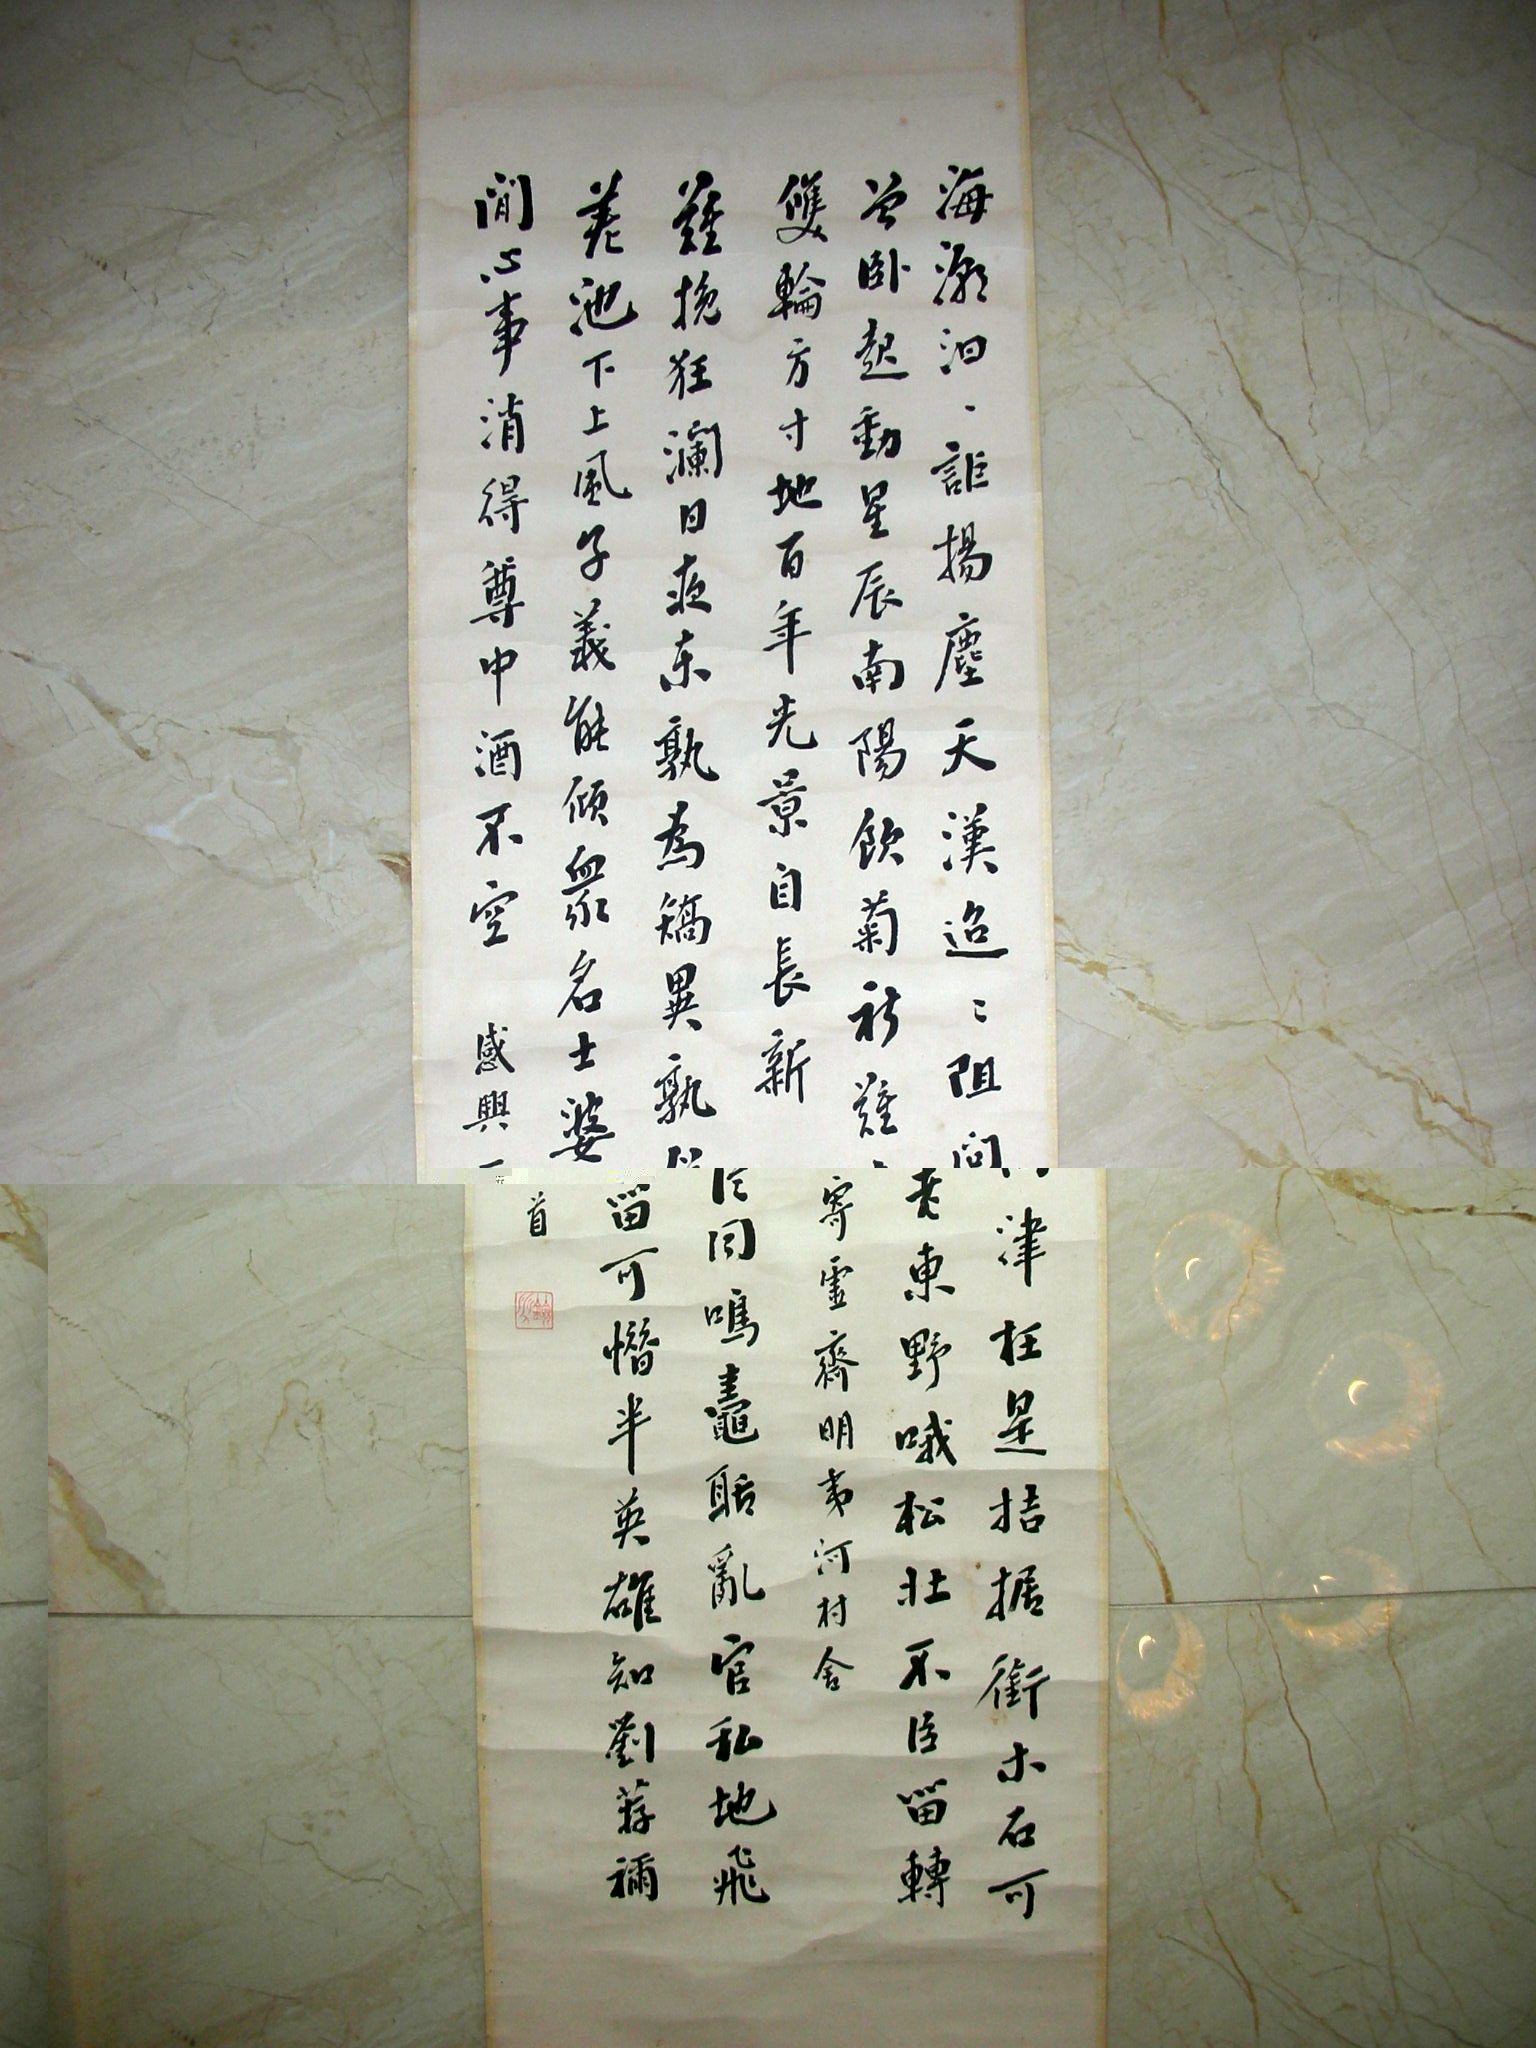 海潮汩、詎揚塵天漢迢〻阻問津枉是拮据銜木石可
曾臥起動星辰南陽飲菊祈難老東野哦松壯不臣留轉
雙輪方寸地百年光景自長新 寄靈齋明夷河村舍
難挽狂瀾日夜東孰為矯異孰從同鳴鼃聒亂官私地飛
差池下上風子義能傾眾名士婆留可憯半英雄知劉蔣禰
閒心事消得尊中酒不空 感興二首